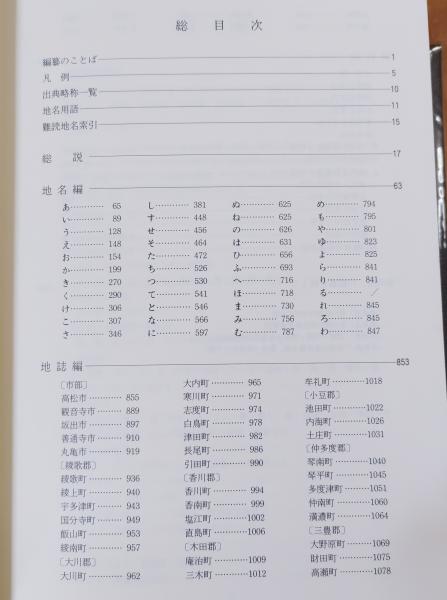 総目次
編纂のことば 1
凡例 5
出典略称一覧 10
地名用語 11
難読地名索引 15
総説 17
地名編 63
あ………… 65
い………… 89
う………… 128
え………… 148
お………… 154
か………… 199
き………… 270
く………… 290
け………… 306
こ………… 307
さ………… 346
し………… 381
す………… 448
せ………… 456
そ………… 464
た………… 472
ち………… 526
つ………… 530
て………… 541
と………… 546
な………… 566
に………… 597
ぬ………… 625
ね………… 625
の………… 626
は………… 631
ひ………… 656
ふ………… 693
へ………… 716
ほ………… 718
ま………… 730
み………… 756
む………… 787
め………… 794
も………… 795
や………… 801
ゆ………… 823
よ………… 825
ら………… 841
り………… 841
る………… /
れ………… 845
ろ………… 845
わ………… 847
地誌編 853
〔市部〕
高松市………… 855
観音寺市………… 889
坂出市………… 897
善通寺市………… 910
丸亀市………… 919
〔綾歌郡〕
綾歌町………… 936
綾上町………… 940
宇多津町………… 943
国分寺町………… 949
飯山町………… 953
綾南町………… 957
〔大川郡〕
大川町………… 962
大内町………… 965
寒川町………… 971
志度町………… 974
白鳥町………… 978
津田町………… 982
長尾町………… 986
引田町………… 990
〔香川郡〕
香川町………… 994
香南町………… 999
塩江町…………1002
直島町…………1006
〔木田郡〕
庵治町…………1009
三木町…………1012
牟礼町…………1018
〔小豆郡〕
池田町…………1022
内海町…………1026
土庄町…………1031
〔仲多度郡〕
琴南町…………1040
琴平町…………1045
多度津町…………1051
仲南町…………1060
満濃町…………1064
〔三豊郡〕
大野原町…………1069
財田町…………1075
高瀬町…………1078